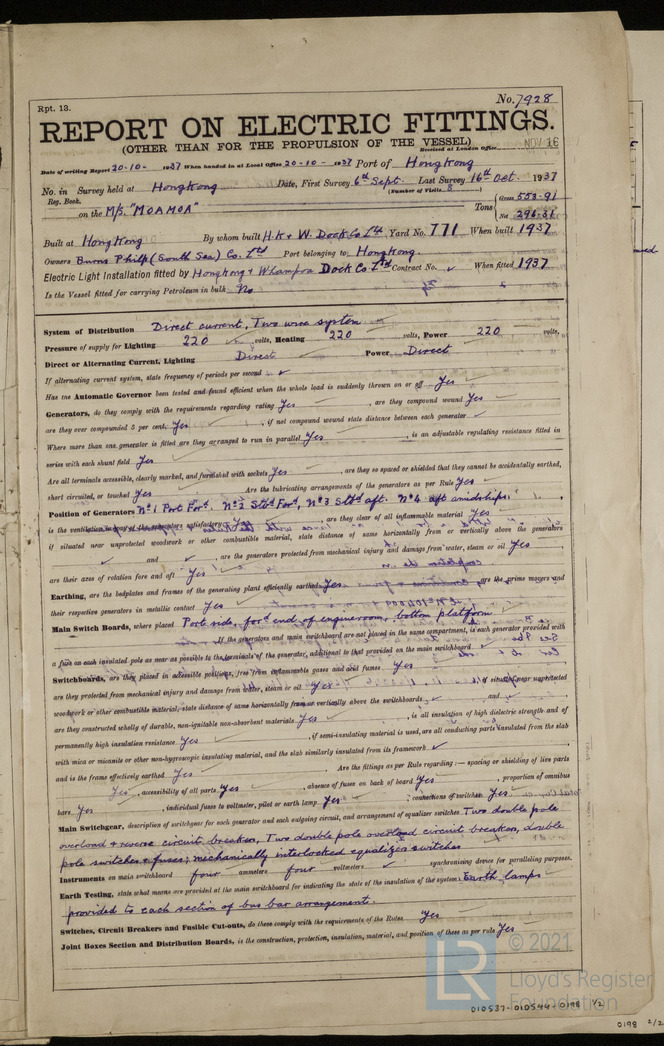 Rpt. 13.
No. 7928
REPORT ON ELECTRIC FITTINGS.
(OTHER THAN FOR THE PROPULSION OF THE VESSEL)
Received at London Office NOV 16
Date of writing Report 20-10-1937 When handed in at Local Office 20-10-1937 Port of Hongkong
No. in Survey held at Hongkong Date, First Survey 6th Sept. Last Survey 16th Oct. 1937
Reg. Book. (Number of Visits 8)
on the M/s. "MOAMOA" Tons Gross 553-91
Net 296-31
Built at Hongkong By whom built H.K. & W. Dock Co Ltd Yard No. 771 When built 1937
Owners Burns Philp (South Sea) Co. Ltd Port belonging to Hongkong.
Electric Light Installation fitted by Hongkong & Whampoa Dock Co Ltd Contract No. ✓ When fitted 1937
Is the Vessel fitted for carrying Petroleum in bulk No
System of Distribution Direct current, Two wire system
Pressure of supply for Lighting 220 volts, Heating 220 volts, Power 220 volts,
Direct or Alternating Current, Lighting Direct Power Direct
If alternating current system, state frequency of periods per second ✓
Has the Automatic Governor been tested and found efficient when the whole load is suddenly thrown on or off Yes
Generators, do they comply with the requirements regarding rating Yes , are they compound wound Yes
are they over compounded 5 per cent. Yes , if not compound wound state distance between each generator ✓
Where more than one generator is fitted are they arranged to run in parallel Yes , is an adjustable regulating resistance fitted in
series with each shunt field Yes
Are all terminals accessible, clearly marked, and furnished with sockets Yes , are they so spaced or shielded that they cannot be accidentally earthed,
short circuited, or touched Yes Are the lubricating arrangements of the generators as per Rule Yes
Position of Generators No 1 Port Ford. No 2 Stbd Ford, No 3 Stbd aft. No 4 aft amidships.
is the ventilation in way of the generators satisfactory Yes , are they clear of all inflammable material Yes
if situated near unprotected woodwork or other combustible material, state distance of same horizontally from or vertically above the generators
✓ and ✓ , are the generators protected from mechanical injury and damage from water, steam or oil Yes
are their axes of rotation fore and aft Yes
Earthing, are the bedplates and frames of the generating plant efficiently earthed Yes are the prime movers and
their respective generators in metallic contact Yes
Main Switch Boards, where placed Port side, for'd end of engine room, bottom platform
If the generators and main switchboard are not placed in the same compartment, is each generator provided with
a fuse on each insulated pole as near as possible to the terminals of the generator, additional to that provided on the main switchboard ✓
Switchboards, are they placed in accessible positions, free from inflammable gases and acid fumes Yes
are they protected from mechanical injury and damage from water, steam or oil Yes , if situated near unprotected
woodwork or other combustible material, state distance of same horizontally from or vertically above the switchboards ✓ and ✓
are they constructed wholly of durable, non-ignitable non-absorbent materials Yes , is all insulation of high dielectric strength and of
permanently high insulation resistance Yes , if semi-insulating material is used, are all conducting parts insulated from the slab
with mica or micanite or other non-hygroscopic insulating material, and the slab similarly insulated from its framework ✓
and is the frame effectively earthed Yes Are the fittings as per Rule regarding:— spacing or shielding of live parts
Yes , accessibility of all parts Yes , absence of fuses on back of board Yes , proportion of omnibus
bars Yes , individual fuses to voltmeter, pilot or earth lamp Yes , connections of switches Yes
Main Switchgear, description of switchgear for each generator and each outgoing circuit, and arrangement of equalizer switches Two double pole
overload & reverse circuit breaker, Two double pole overload circuit breaker, double
pole switches & fuses; mechanically interlocked equalizer switches
Instruments on main switchboard four ammeters four voltmeters ✓ synchronising device for paralleling purposes.
Earth Testing, state what means are provided at the main switchboard for indicating the state of the insulation of the system Earth lamps
provided to each section of bus bar arrangement.
Switches, Circuit Breakers and Fusible Cut-outs, do these comply with the requirements of the Rules Yes
Joint Boxes Section and Distribution Boards, is the construction, protection, insulation, material, and position of these as per rule Yes
© 2021
LR
Lloyd's Register
Foundation
010537-010544-0198 1/2
0198 2/2